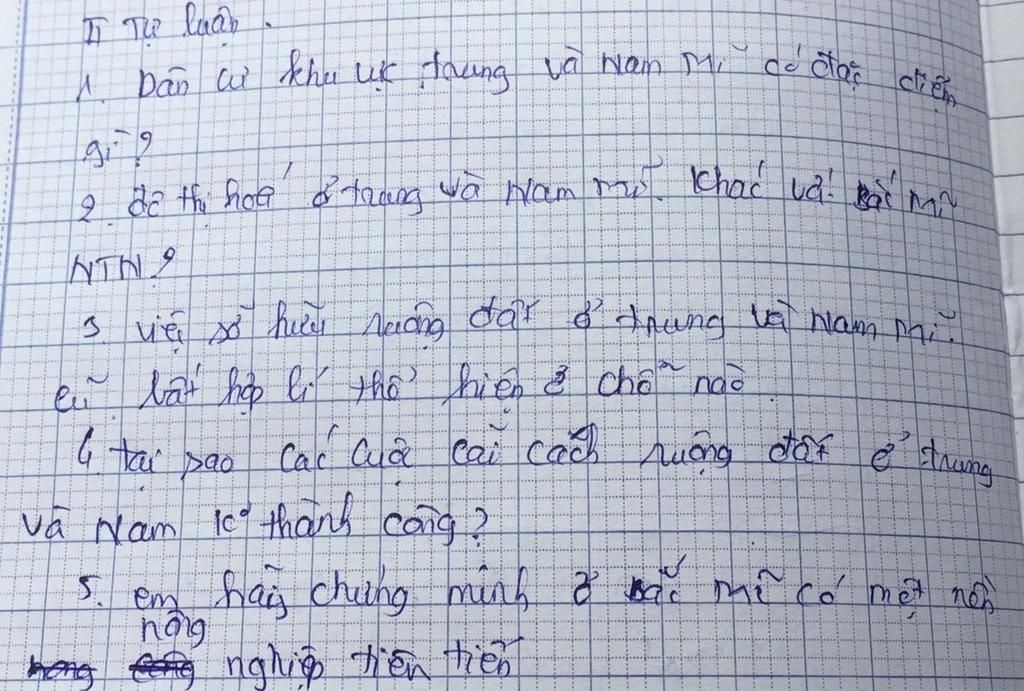 II Tự luận.
1. Dân cư khu vực trung và Nam Mĩ có đặc điểm
gì?
2. đô thị hoá ở trung và Nam mĩ. khác với bắt mĩ
NTN?
3 việ sở hữu ruộng đất ở trung và Nam mĩ.
bất hợp lí thể hiện ở chỗ nào
4. tại sao các cuộ cải cách ruộng đất ở trung
và Nam ko thành công?
5. em hãy chứng minh ở bắc mĩ có một nền
nông
nghiệp tiên tiến